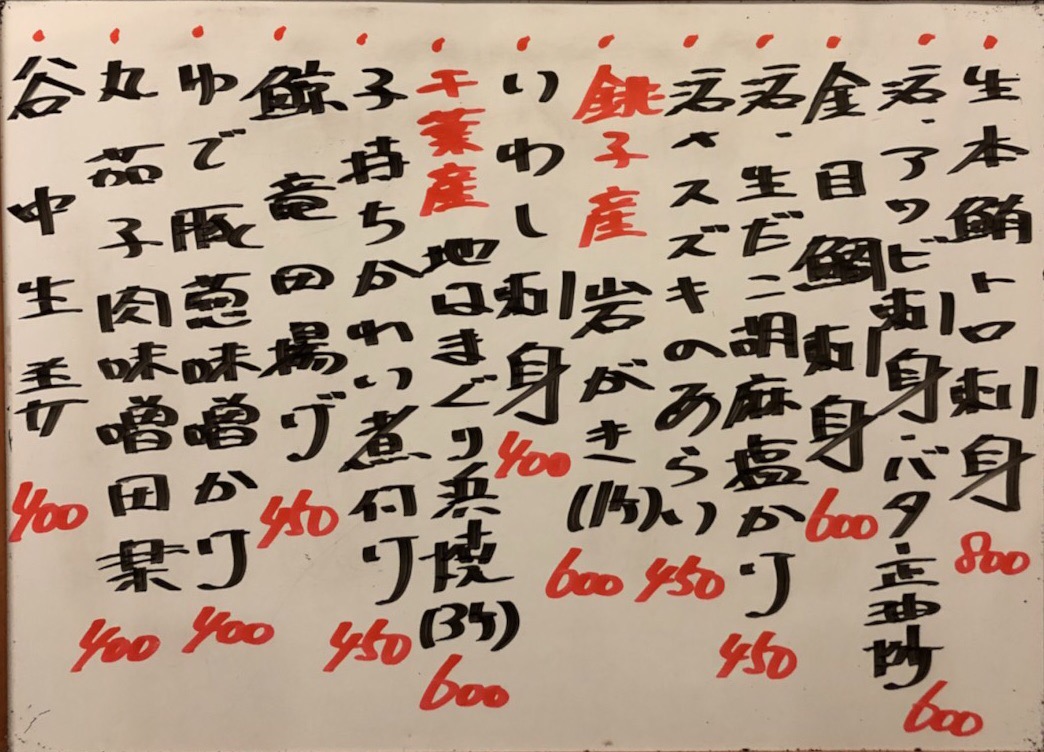 生本鮪トロ刺身 800
活・アワビ刺身・バタ正油炒 600
金目鯛刺身 600
活・生だこ胡麻塩かけ 450
活〆スズキのあらい 450
銚子産 岩がき(1ケ) 600
いわし刺身 400
千葉産 地はまぐり浜焼(3ケ) 600
子持ちかれい煮付け 450
鯨竜田揚げ 450
ゆで豚葱味噌かけ 400
丸茄子肉味噌田楽 400
谷中生姜 400